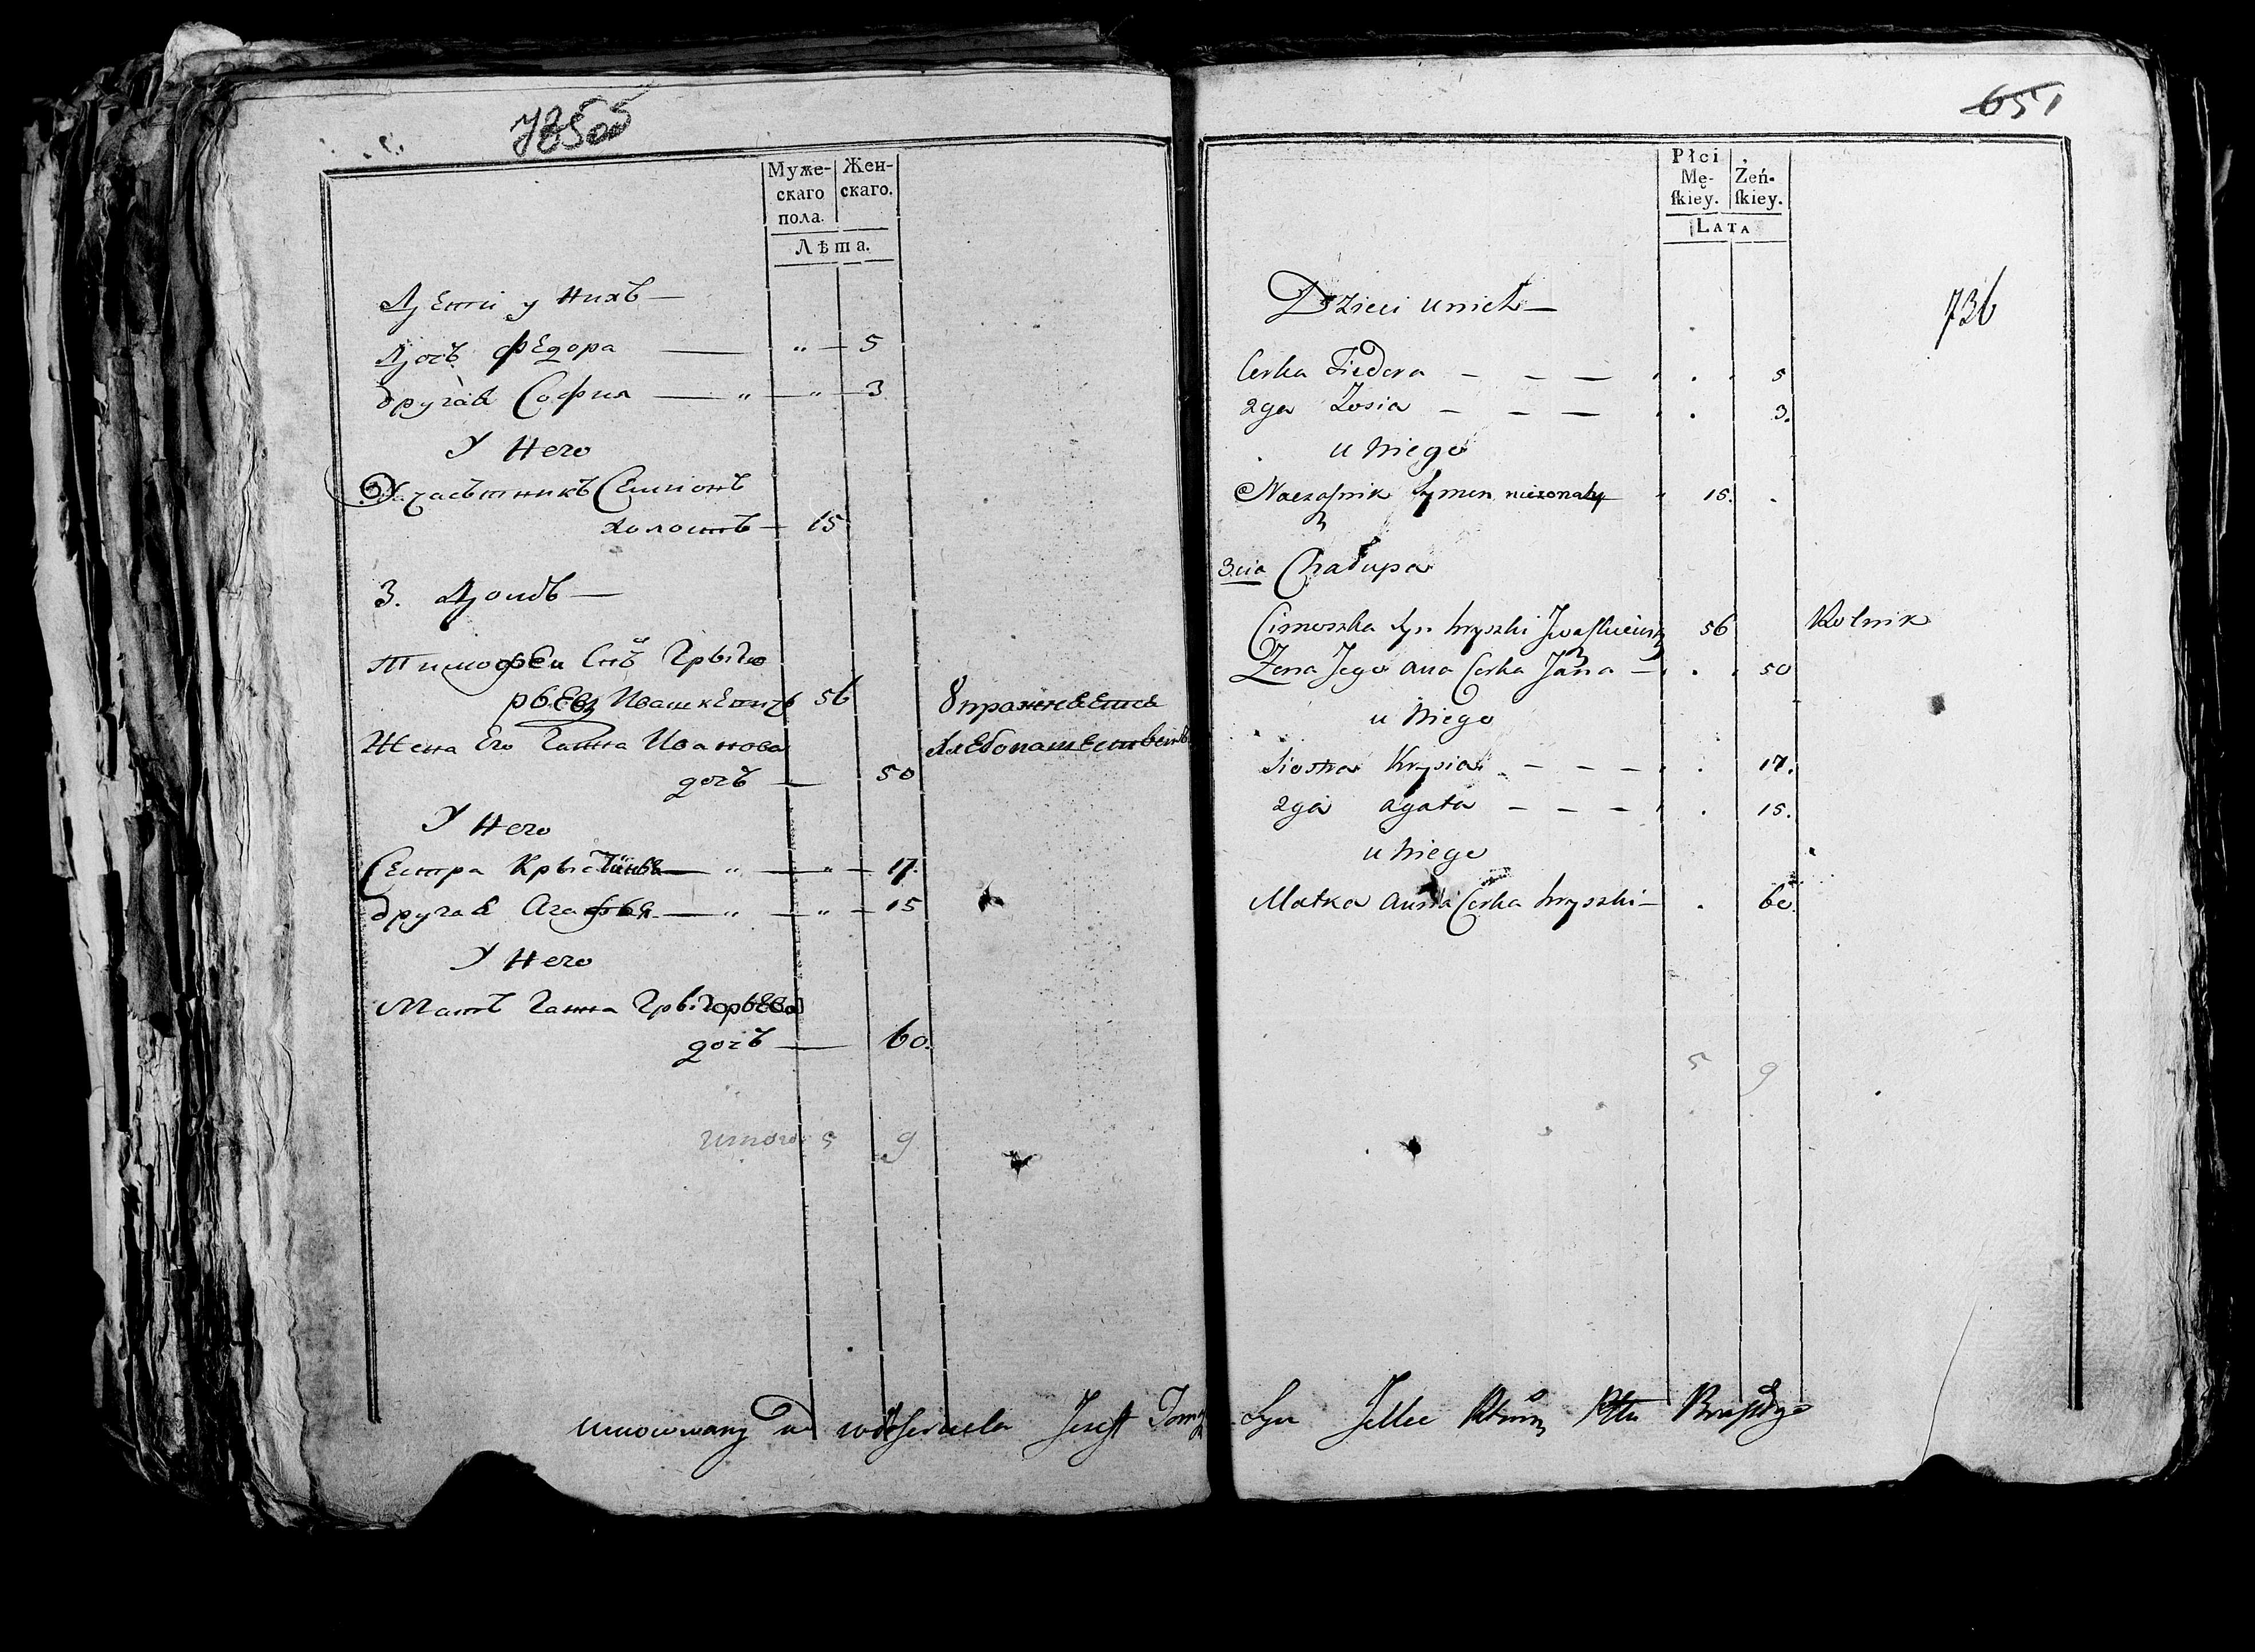 735об
Муже-
скаго
пола.
Жен-
скаго.
Лѣта.
Дѣти у нихъ —
Дочь Федора — " — 5
другая София — " — " — 3
У Него
Участникъ Симионъ
холостъ — 15
3. Домъ —
Тимофѣи Снъ Григо
рьевъ Ивашкевичъ 56
Упражняется
Жена Его Ганна Иванова
хлебопашествомъ
дочь — 50
У Него
Сестра Крыстина — " — " — 17.
другая Агафья — " — " — 15
У Него
Мать Ганна Григорьева
дочь — 60.
итого 5 9
651
Płci
Mę-
ſkiey.
Żeń-
ſkiey.
LATA
736
Dzieci u nich —
Corka Fiedora — — — 5
2ga Zosia — — — 3.
u niego
Symon nieżonaty 15.
3cia Chałupa
Cimoszka Syn hryszki 56 Rolnik
Żena Jego Ana Corka Jana — 50
u niego
Siostra Krysia — — — 17.
2ga agata — — — 15.
u niego
Matka Anna Corka hryszki — 60.
5 9
Jozeff Syn